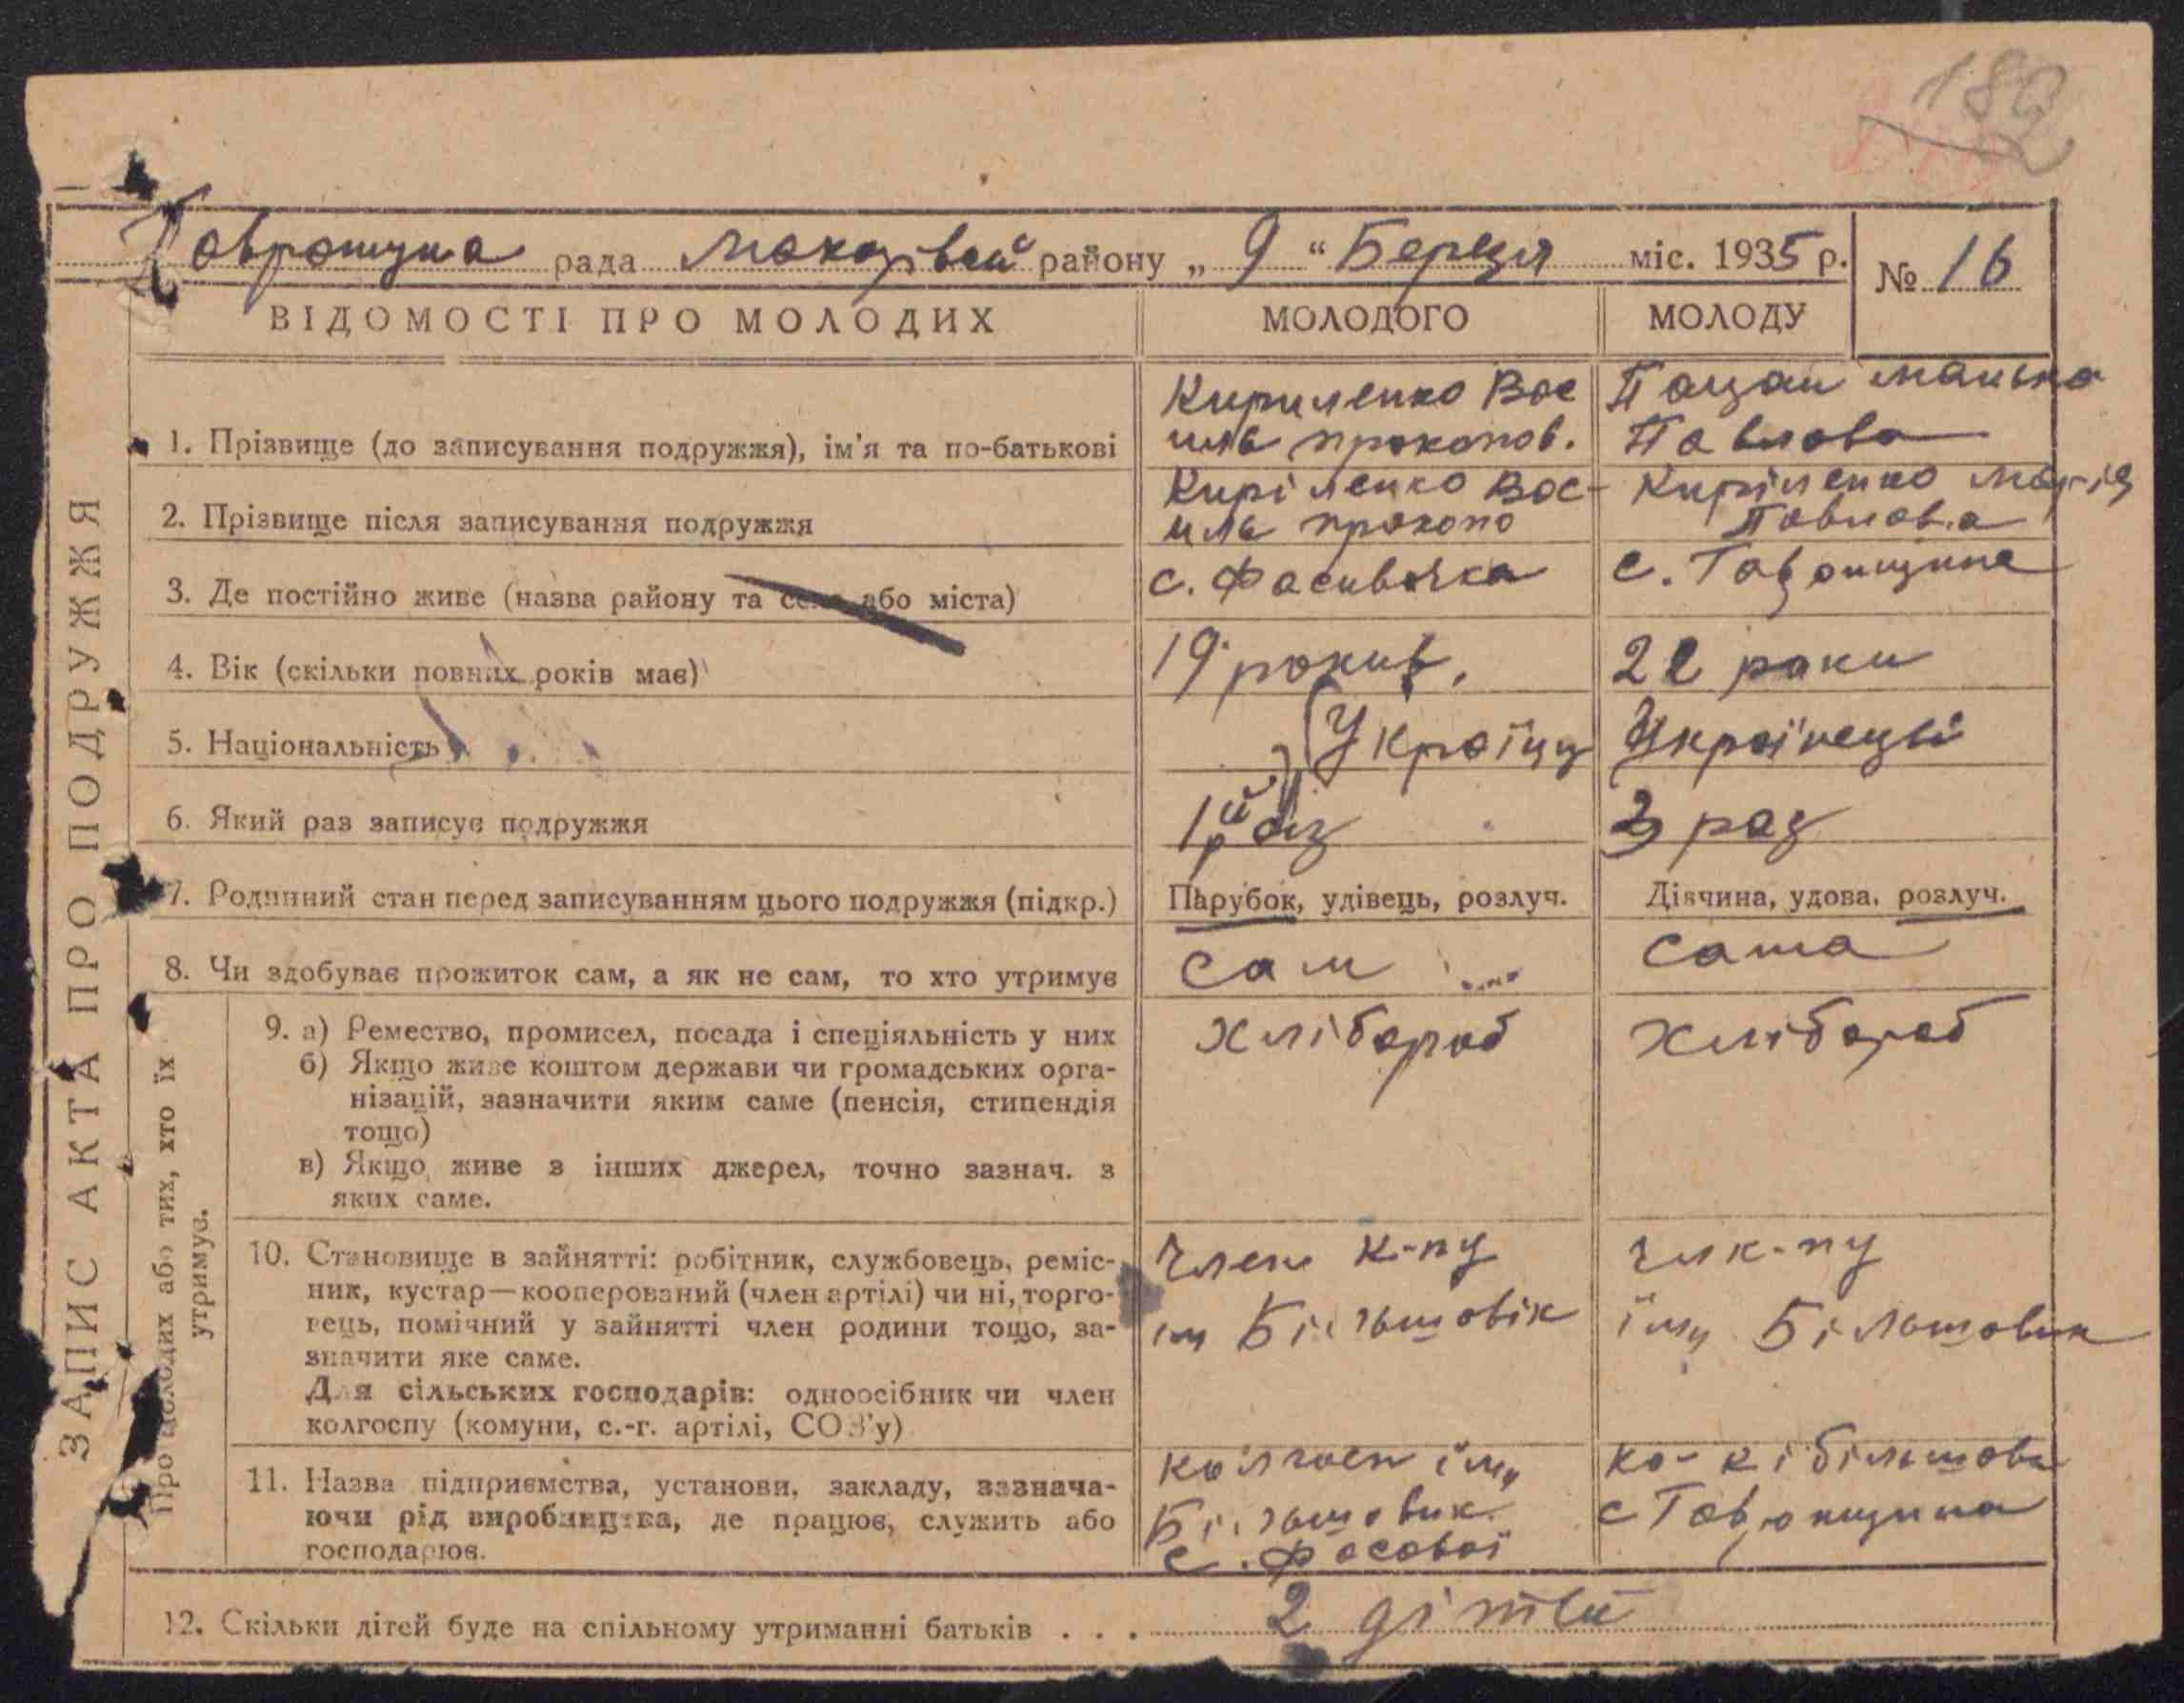 182
рада району „ 9 “ Березня міс. 1935 р. № 16
ЗАПИС АКТА ПРО ПОДРУЖЖЯ
ВІДОМОСТІ ПРО МОЛОДИХ МОЛОДОГО МОЛОДУ
1. Прізвище (до записування подружжя), ім'я та по-батькові
Кириленко Вас
иль прокопов.
Павлова
2. Прізвище після записування подружжя
Киріленко Вас-
иль прокопо
Киріленко Марія
Павлова
3. Де постійно живе (назва району та села або міста)
с. Фасивочка
с. Гавронщина
4. Вік (скільки повних років має)
19 рокив.
22 роки
5. Національність
Україн
Українець
6. Який раз записує подружжя
1й раз
раз
7. Родинний стан перед записуванням цього подружжя (підкр.)
Парубок, удівець, розлуч.
Дівчина, удова, розлуч.
8. Чи здобуває прожиток сам, а як не сам, то хто утримує
сам
сама
Про молодих або тих, хто їх
утримує.
9. а) Ремество, промисел, посада і спеціяльність у них
б) Якщо живе коштом держави чи громадських орга-
нізацій, зазначити яким саме (пенсія, стипендія
тощо)
в) Якщо живе з інших джерел, точно зазнач. з
яких саме.
хлібороб
хлібороб
10. Становище в зайнятті: робітник, службовець, реміс-
ник, кустар—кооперований (член артілі) чи ні, торго-
вець, помічний у зайнятті член родини тощо, за-
значити яке саме.
Для сільських господарів: одноосібник чи член
колгоспу (комуни, с.-г. артілі, СОЗ'у)
Член к-пу
ім Більшовік
чл к-пу
Більшовик
11. Назва підприємства, установи, закладу, зазнача-
ючи рід виробництва, де працює, служить або
господарює.
колгосп
Більшовик
с. Фасової
с Гавронщина
12. Скільки дітей буде на спільному утриманні батьків . . . 2 дітей